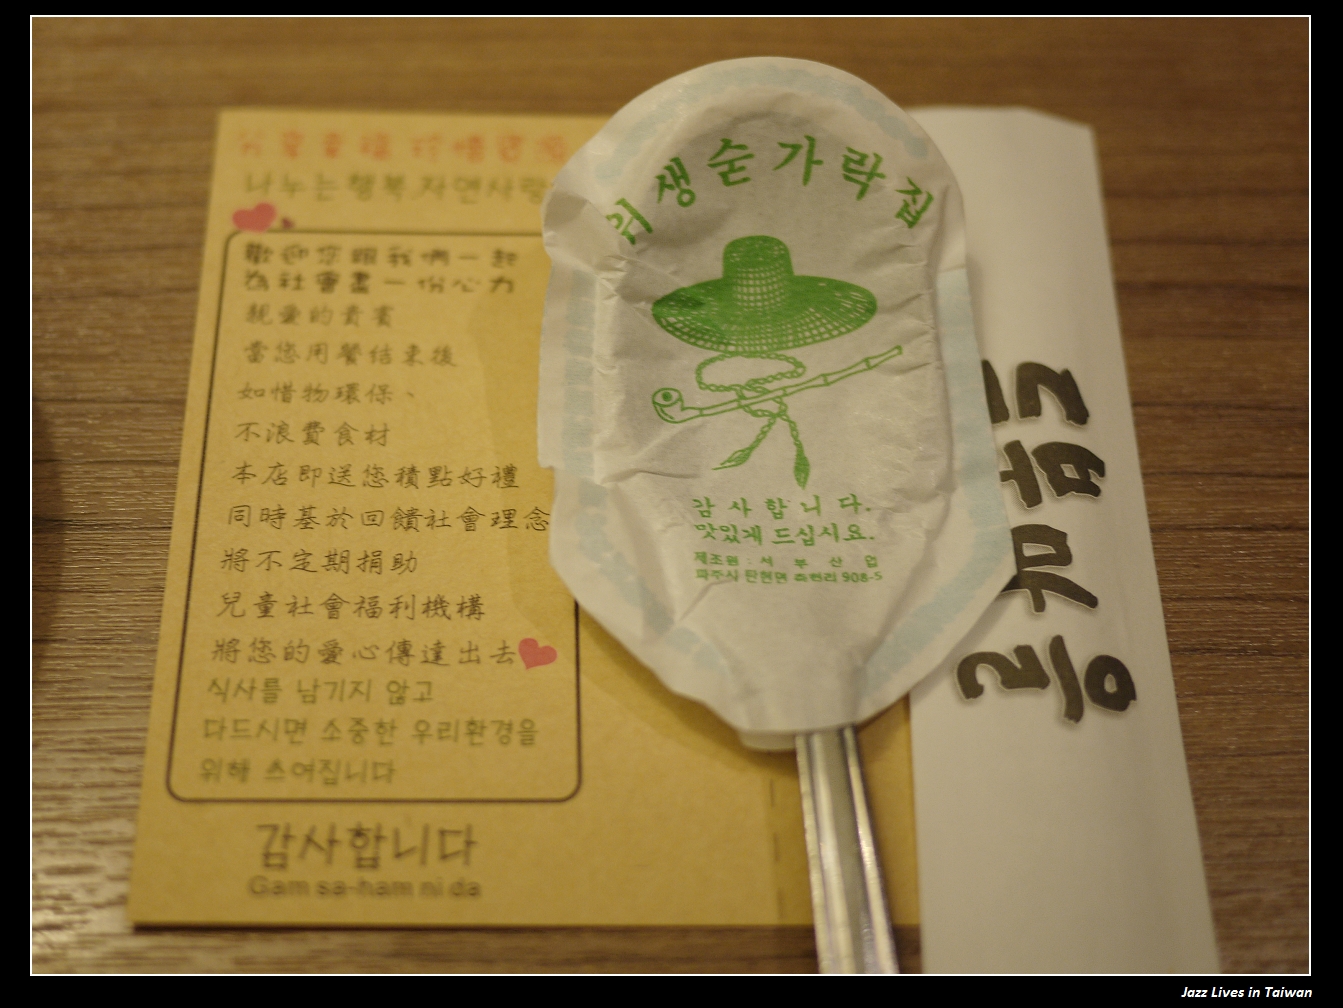 分享幸福 珍惜資源
나누는행복 자연사랑
歡迎您跟我們一起
為社會盡一份心力
親愛的貴賓
當您用餐結束後
如惜物環保、
不浪費食材
本店即送您積點好禮
同時基於回饋社會理念
將不定期捐助
兒童社會福利機構
將您的愛心傳達出去
식사를 남기지 않고
다드시면 소중한 우리환경을
위해 쓰여집니다
감사합니다
Gam sa-ham ni da
위생숟가락집
감사합니다.
맛있게 드십시요.
제조원 : 서부산업
파주시 탄현면 908-5
Jazz Lives in Taiwan